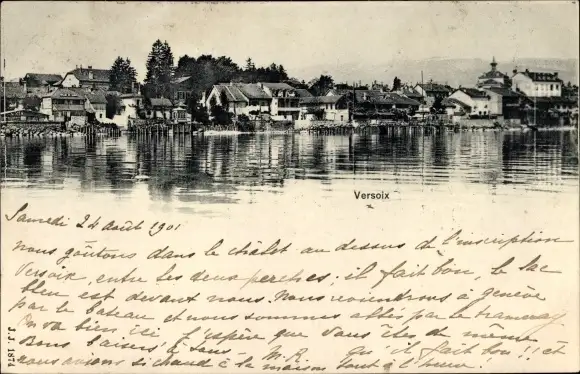 Versoix
Samedi 24 août 1901
nous goûtons dans le châlet au dessus de l'inscription
Versoix, entre les deux perches; il fait bon, le lac
bleu est devant nous. Nous reviendrons à genève
par le bateau et nous sommes allés par le tramway
on va bien ici J'espère que vous êtes de même
Bons baisers à tous M. R. qu'il fait bon!! et
nous avions si chaud à la maison tout à l'heure!
J.J. 1874